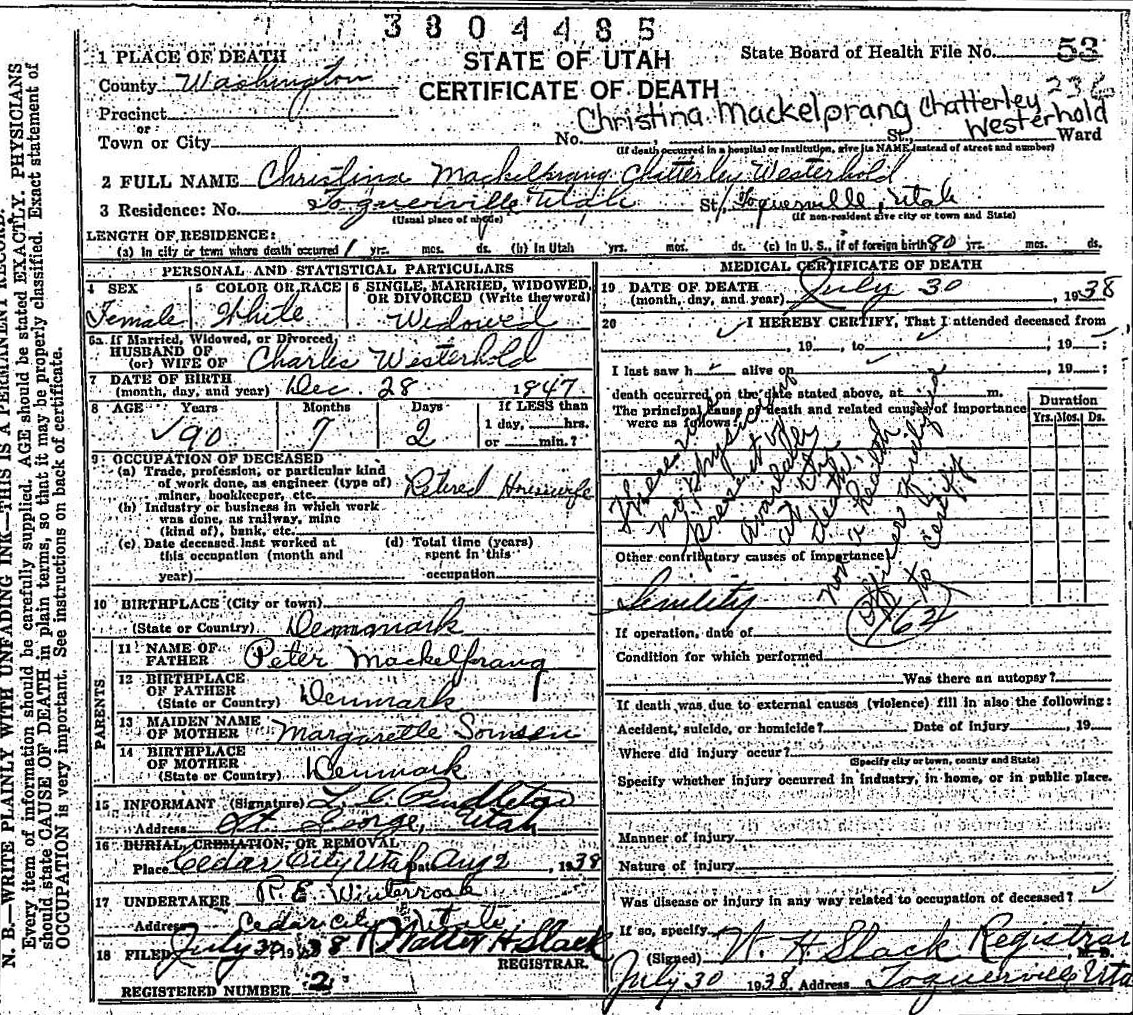 3804485
1 PLACE OF DEATH
STATE OF UTAH
State Board of Health File No. 53
County Washington
CERTIFICATE OF DEATH
236
Precinct
Christina Mackelprang Chatterley Westerhold
or
Town or City No. St Ward
(If death occurred in a hospital or institution, give its NAME instead of street and number)
2 FULL NAME Christina Mackelprang Chatterley Westerhold
3 Residence: No. Toquerville Utah St. Toquerville, Utah
(Usual place of abode) (If non-resident give city or town and State)
LENGTH OF RESIDENCE:
(a) In city or town where death occurred 1 yrs. mos. ds. (b) In Utah yrs. mos. ds. (c) In U. S., if of foreign birth 80 yrs. mos. ds.
PERSONAL AND STATISTICAL PARTICULARS
4 SEX
Female
5 COLOR OR RACE
White
6 SINGLE, MARRIED, WIDOWED,
OR DIVORCED (Write the word)
Widowed
5a. If Married, Widowed, or Divorced,
HUSBAND OF
(or) WIFE OF Charles Westerhold
7 DATE OF BIRTH
(month, day, and year) Dec. 28 1847
8 AGE Years Months Days If LESS than
1 day, hrs.
90 7 2
or min.?
9 OCCUPATION OF DECEASED
(a) Trade, profession, or particular kind
of work done, as engineer (type of)
miner, bookkeeper, etc. Retired Housewife
(b) Industry or business in which work
was done, as railway, mine
(kind of), bank, etc.
(c) Date deceased last worked at
this occupation (month and
year)
(d) Total time (years)
spent in this
occupation
10 BIRTHPLACE (City or town)
(State or Country) Denmark
PARENTS
11 NAME OF
FATHER Peter Mackelprang
12 BIRTHPLACE
OF FATHER
(State or Country) Denmark
13 MAIDEN NAME
OF MOTHER Margarette
14 BIRTHPLACE
OF MOTHER
(State or Country) Denmark
15 INFORMANT (Signature) L. C. Pendleton
Address St. George, Utah
16 BURIAL, CREMATION, OR REMOVAL
Place Cedar City Utah Date Aug 2, 1938
17 UNDERTAKER R. E.
Address Cedar City Utah
18 FILED July 30 1938 Walter H. Slack
REGISTRAR.
REGISTERED NUMBER 2
MEDICAL CERTIFICATE OF DEATH
19 DATE OF DEATH
(month, day, and year) July 30, 1938
20 I HEREBY CERTIFY, That I attended deceased from
, 19 , to , 19 ;
I last saw h alive on , 19 ;
death occurred on the date stated above, at m.
The principal cause of death and related causes of importance
were as follows:
Duration
Yrs. Mos. Ds.
There
no physician
present or
available
at the
death.
nor a health
officer
to certify
Other contributory causes of importance
Senility
162
If operation, date of
Condition for which performed
Was there an autopsy?
If death was due to external causes (violence) fill in also the following:
Accident, suicide, or homicide? Date of injury , 19
Where did injury occur?
(Specify city or town, county and State)
Specify whether injury occurred in industry, in home, or in public place.
Manner of injury
Nature of injury
Was disease or injury in any way related to occupation of deceased?
If so, specify
(Signed) W. H. Slack Registrar M. D.
July 30 1938 Address Toquerville Uta
N. B.—WRITE PLAINLY WITH UNFADING INK—THIS IS A PERMANENT RECORD.
Every item of information should be carefully supplied. AGE should be stated EXACTLY. PHYSICIANS
should state CAUSE OF DEATH in plain terms, so that it may be properly classified. Exact statement of
OCCUPATION is very important. See instructions on back of certificate.